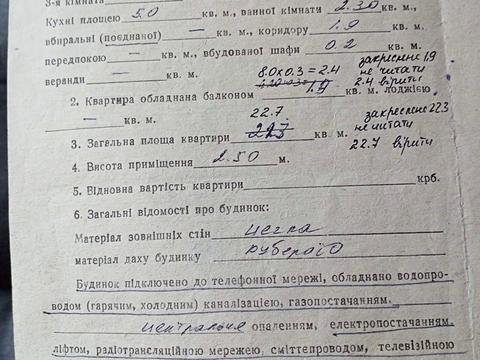 3-я кімната
Кухні площею 5.0 кв. м., ванної кімнати 2.30 кв. м.,
вбиральні (поєднаної) — кв. м., коридору 1.9 кв. м.,
передпокою — кв. м., вбудованої шафи 0.2 кв. м.,
веранди — кв. м.
8.0х0.3=2.4
закреслене 1,9
не читати
2.4 вірити
2. Квартира обладнана балконом 1.9 кв. м. лоджією
— кв. м.
22.7
закреслене 22.3
не читати
22.7 вірити
3. Загальна площа квартири кв. м.
4. Висота приміщення 2.50 м.
5. Відновна вартість квартири крб.
6. Загальні відомості про будинок:
Матеріал зовнішніх стін цегла
матеріал даху будинку рубероїд
Будинок підключено до телефонної мережі, обладнано водопро-
водом (гарячим, холодним) каналізацією, газопостачанням.
центральне опаленням, електропостачанням.
ліфтом, радіотрансляційною мережею, сміттєпроводом, телевізійною